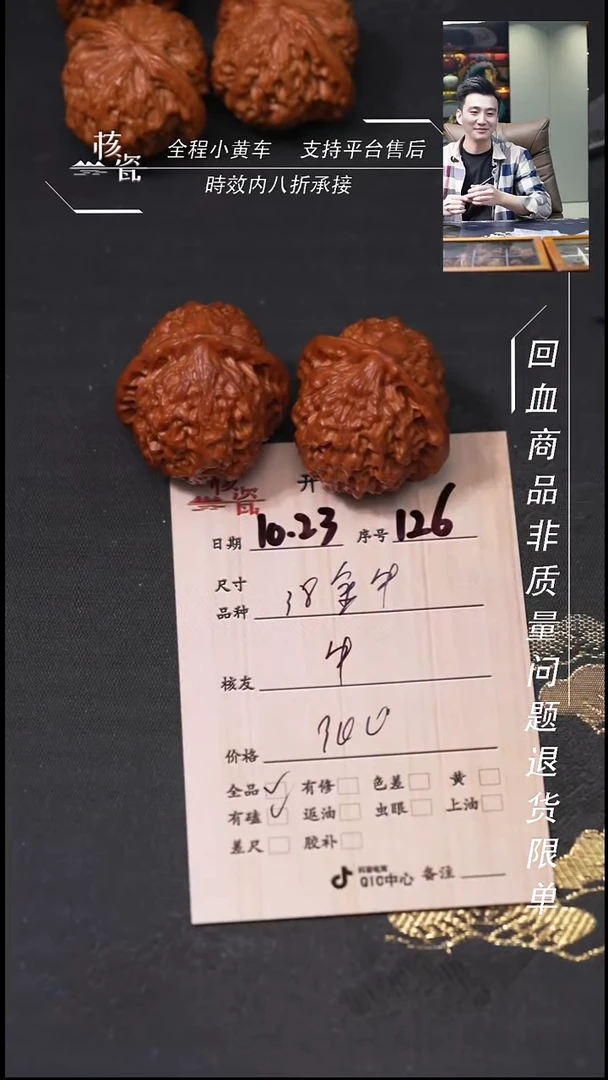 核瓷
全程小黄车 支持平台售后
時效内八折承接
回血商品非质量问题退货限单
核瓷
开
日期 10.23 序号 126
尺寸
品种 38金牛
核友 牛
价格 300
全品 ✓ 有修 色差 黄
有磕 ✓ 返油 虫眼 上油
差尺 胶补
抖音电商
QIC中心 备注